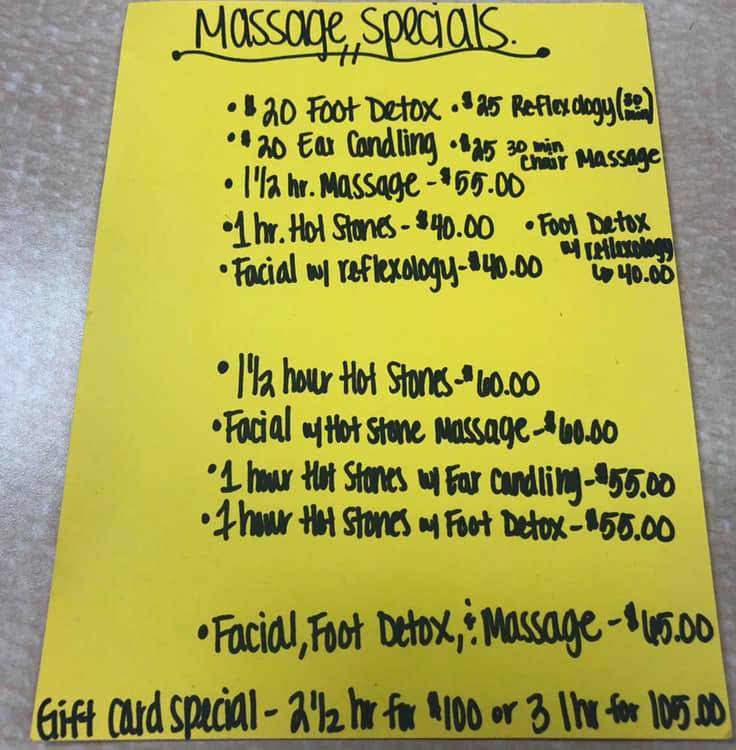 Massage Specials.
• $20 Foot Detox • $25 Reflexology (30 min)
• $20 Ear Candling • $25 30 min Chair Massage
• 1 1/2 hr. Massage - $55.00
• 1 hr. Hot Stones - $40.00 • Foot Detox
w/ reflexology
• Facial w/ reflexology - $40.00 ↳ 40.00
• 1 1/2 hour Hot Stones - $60.00
• Facial w/ Hot Stone Massage - $60.00
• 1 hour Hot Stones w/ Ear Candling - $55.00
• 1 hour Hot Stones w/ Foot Detox - $55.00
• Facial, Foot Detox, & Massage - $65.00
Gift Card Special - 2 1/2 hr for $100 or 3 1 hr for 105.00